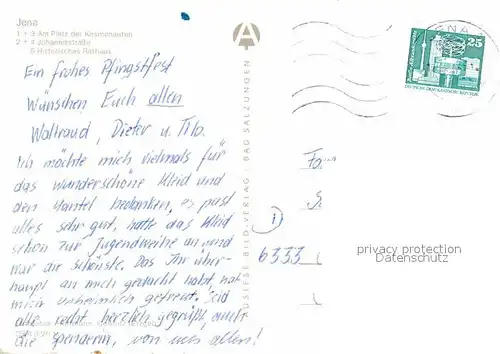 Jena
1 + 3 Am Platz der Kosmonauten
2 + 4 Johannisstraße
5 Historisches Rathaus
Ein frohes Pfingstfest
wünschen Euch allen
Waltraud, Dieter u. Tilo.
Ich möchte mich vielmals für
das wunderschöne Kleid und
den Mantel bedanken, es past
alles sehr gut, hatte das Kleid
schon zur Jugendweihe an und
war die schönste. Das Ihr über-
haupt an mich gedacht habt, hat
mich unheimlich gefreut. Seid
alle recht herzlich gegrüßt, auch
die Spenderin, von uns allen!
AUSLESE-BILD-VERLAG · BAD SALZUNGEN
25
6333
privacy protection
Datenschutz